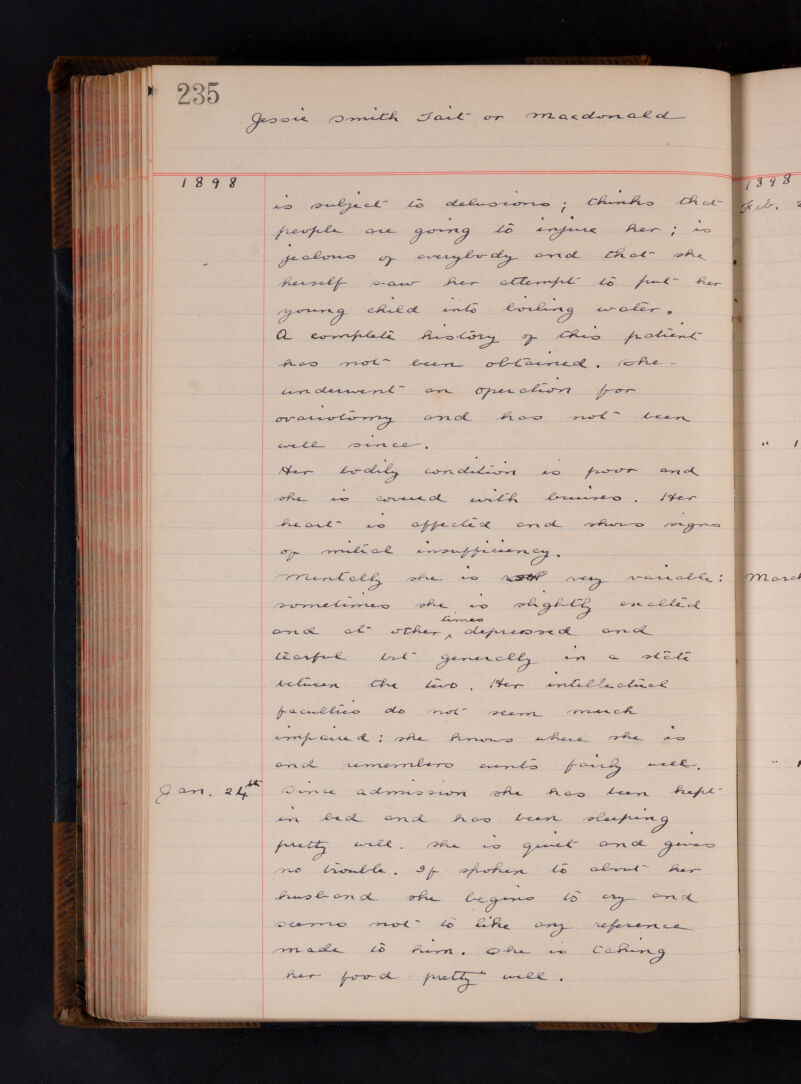 235
Jessie Smith Tait or Macdonald
1898
is subject to delusions; thinks that
people are going to injure her; is
jealous of everybody and that she
herself saw her attempt to put her
young child into boiling water.
A complete history of this patient
has not been obtained. She
underwent an operation for
ovariotomy and has not been
well since.
Her bodily condition is poor and
she is covered with bruises. Her
heart is affected and shows signs
of mitral insufficiency.
Mentally she is very variable:
sometimes she is slightly exalted
and at other times depressed and
tearful but generally in a state
between the two. Her intellectual
faculties do not seem much
impaired: she knows where she is
and remembers events fairly well.
Jan. 24th Since admission she has been kept
in bed and has been sleeping
pretty well. She is quiet and gives
no trouble. If spoken to about her
husband she begins to cry and
seems not to like any reference
made to him. She is taking
her food pretty well.
1898
Feb.
"
March
"